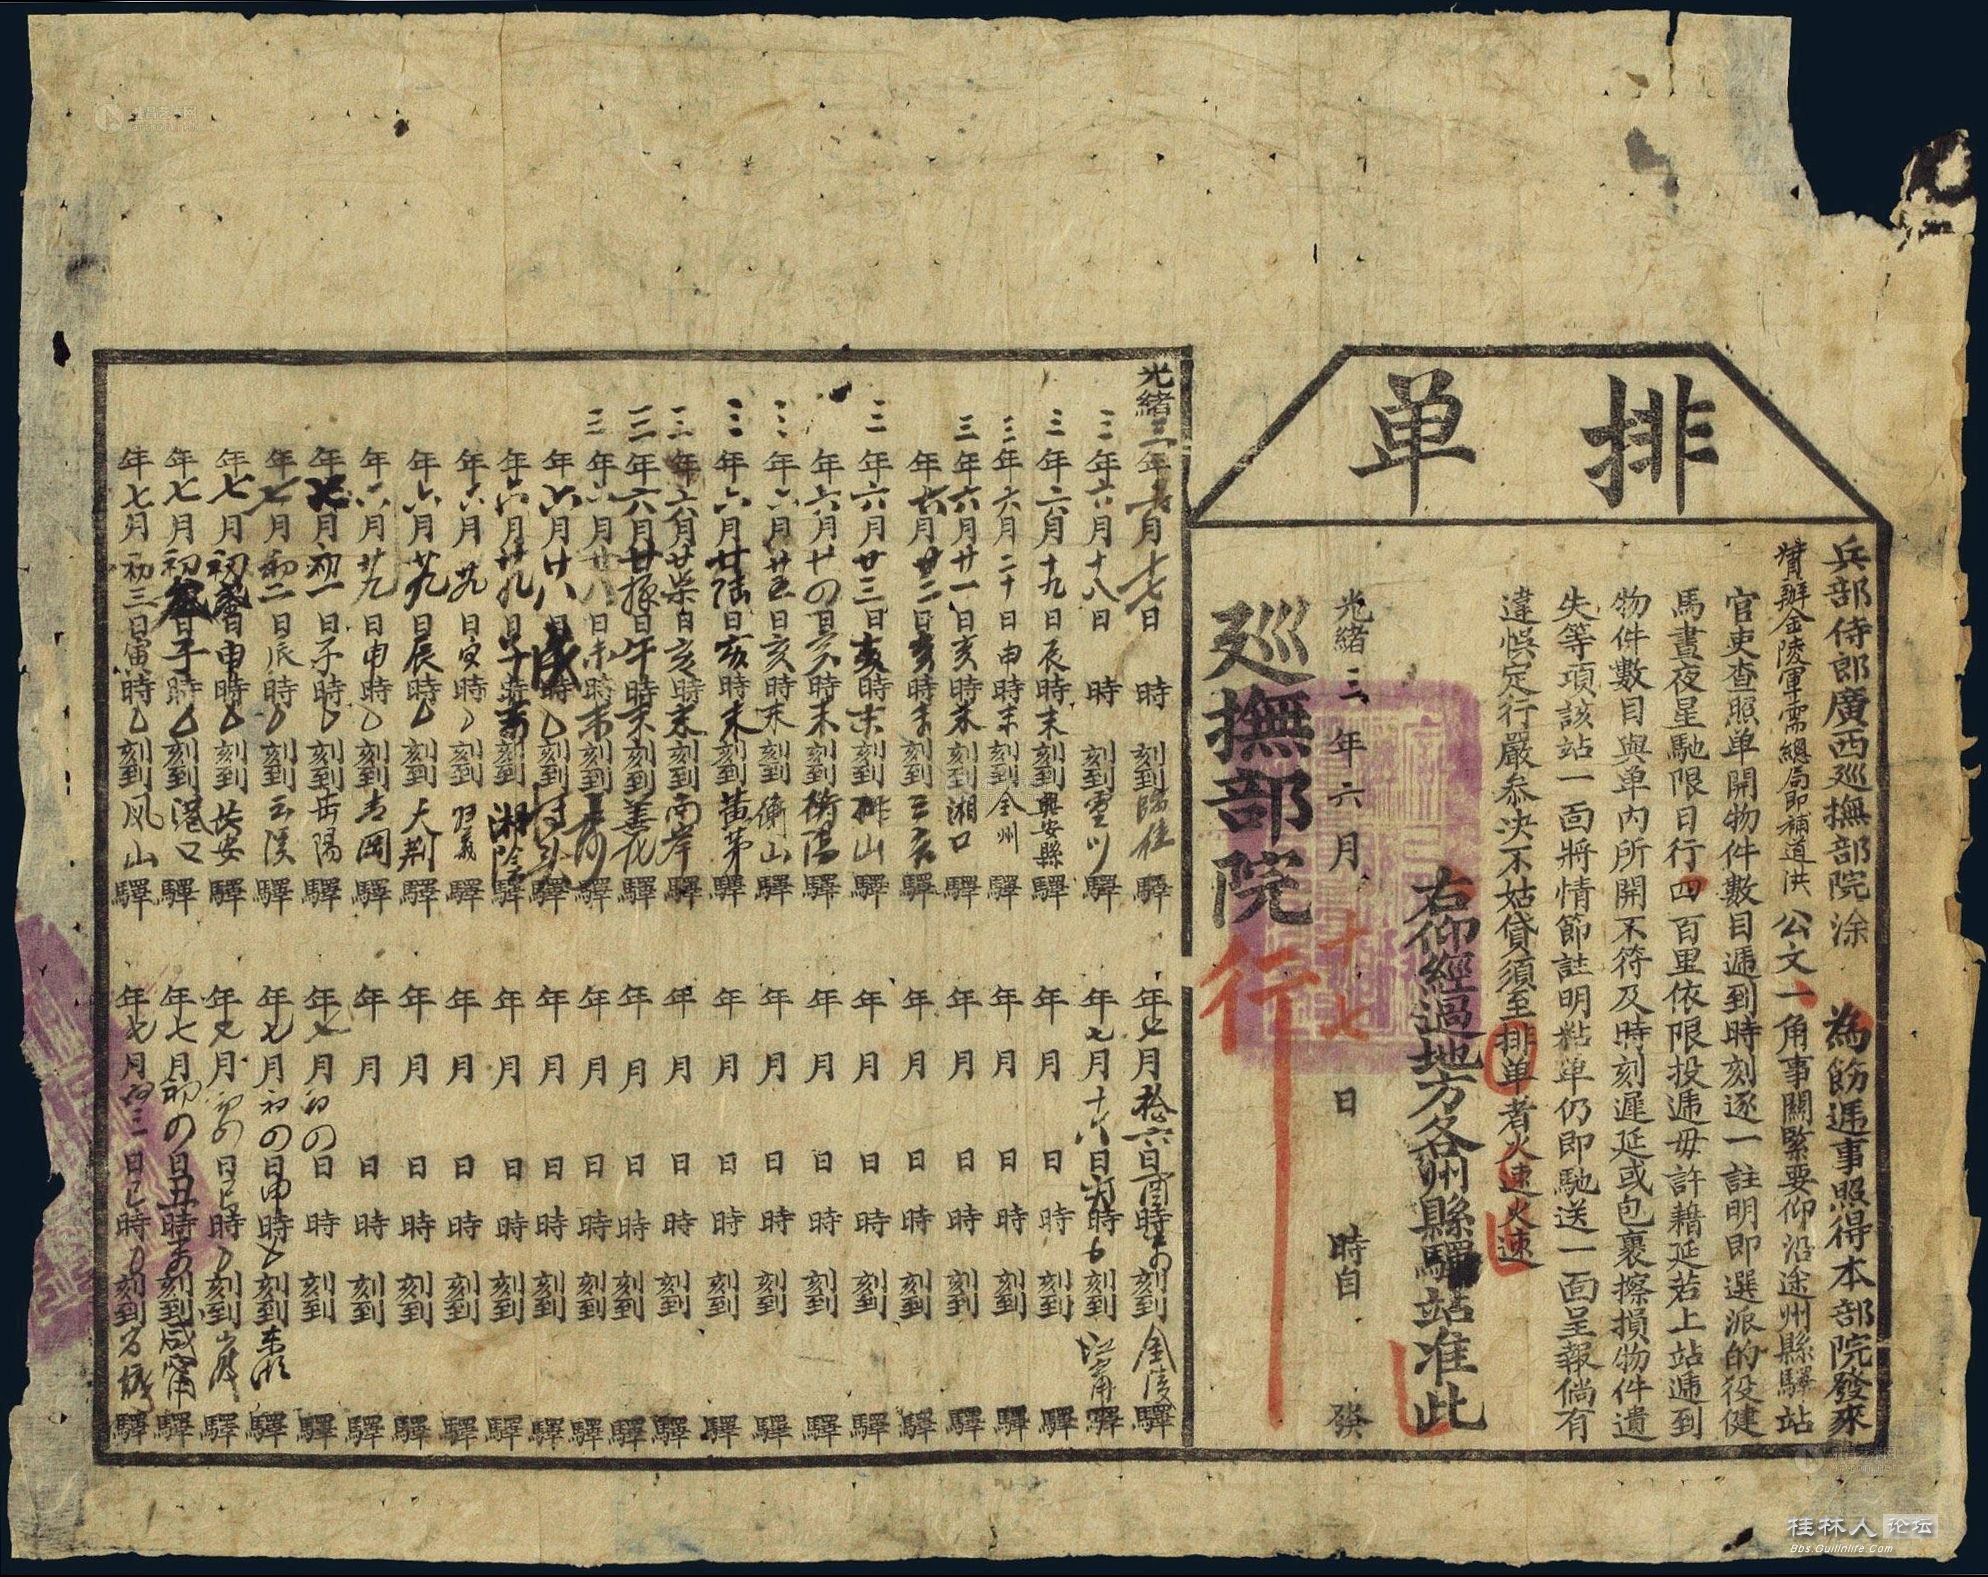 排單
兵部侍郎廣西巡撫部院涂 為飭遞事照得本部院發來
辦金陵軍需總局即補道洪 公文一角事關緊要仰沿途州縣驛站
官吏查照单開物件數目遞到時刻逐一註明即選派的役健
馬晝夜星馳限日行四百里依限投遞毋許藉延若上站遞到
物件數目與单內所開不符及時刻遲延或包裹擦損物件遺
失等項該站一面將情節註明粘单仍即馳送一面呈報倘有
違悞定行嚴叅決不姑貸須至排单者火速火速
右仰經過地方各州縣驛站准此
光緒三年六月十七日 時自 發
巡撫部院行
光緒三年六月十七日 時 刻到臨桂驛
三年六月十八日 時 刻到靈川驛
三年六月十九日辰時末刻到興安縣驛
三年六月二十日申時末刻到全州驛
三年六月廿一日亥時末刻到湘口驛
年六月廿二日亥時末刻到三吾驛
三年六月廿三日亥時末刻到排山驛
年六月廿四日亥時末刻到衡陽驛
三年六月廿五日亥時末刻到衡山驛
三年六月廿陆日亥時末刻到黄茅驛
三年六月廿柒日亥時末刻到南岸驛
三年六月廿捌日午時末刻到善化驛
三年六月廿八日未時末刻到長沙驛
年六月廿八日戌時 刻到 驛
年六月廿九日子時 刻到湘陰驛
年六月廿九日寅時 刻到 驛
年六月廿九日辰時 刻到大荊驛
年六月廿九日申時 刻到青岡驛
年七月初一日子時 刻到岳陽驛
年七月初二日辰時 刻到云溪驛
年七月初 日申時 刻到長安驛
年七月初叁日子時 刻到港口驛
年七月初三日寅時 刻到凤山驛
年七月拾六日酉時 刻到金陵驛
年七月十六日 時 刻到江甯驛
年 月 日 時 刻到 驛
年 月 日 時 刻到 驛
年 月 日 時 刻到 驛
年 月 日 時 刻到 驛
年 月 日 時 刻到 驛
年 月 日 時 刻到 驛
年 月 日 時 刻到 驛
年 月 日 時 刻到 驛
年 月 日 時 刻到 驛
年 月 日 時 刻到 驛
年 月 日 時 刻到 驛
年 月 日 時 刻到 驛
年 月 日 時 刻到 驛
年 月 日 時 刻到 驛
年 月 日 時 刻到 驛
年 月 日 時 刻到 驛
年七月初四日 時 刻到 驛
年七月初四日申時 刻到東湖驛
年七月初四日巳時 刻到山坡驛
年七月初四日丑時末刻到咸甯驛
年七月初三日巳時 刻到官塘驛
桂林人论坛
Bbs.Guilinlife.Com